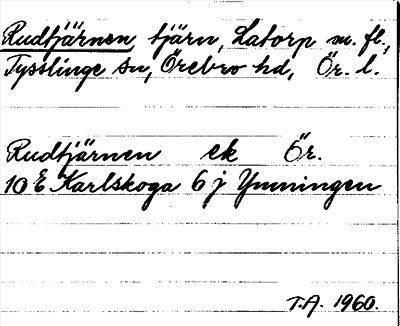 Rudtjärnen, tjärn, Latorp m. fl.,
Tysslinge sn, Örebro hd, Ör. l.
Rudtjärnen ek Ör.
10 E Karlskoga 6 j Ymningen
T.A. 1960.